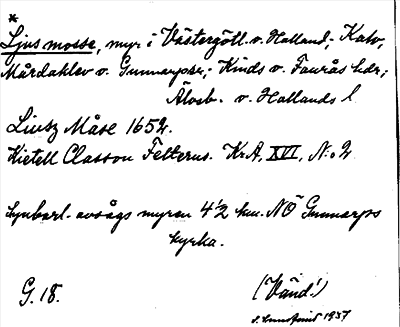 *
Ljus mosse, myr i Västergötl. o. Halland; Kalv,
Mårdaklev o. Gunnarps sr; Kinds o. Faurås hdr;
Älvsb. o. Hallands l
Liusz Måse 1652.
Kietell Classon Felterus. KrA, XVI, N:o 2
avsågs myren 4 1/2 km. NÖ Gunnarps
kyrka.
G. 18.
(Vänd!)
1937